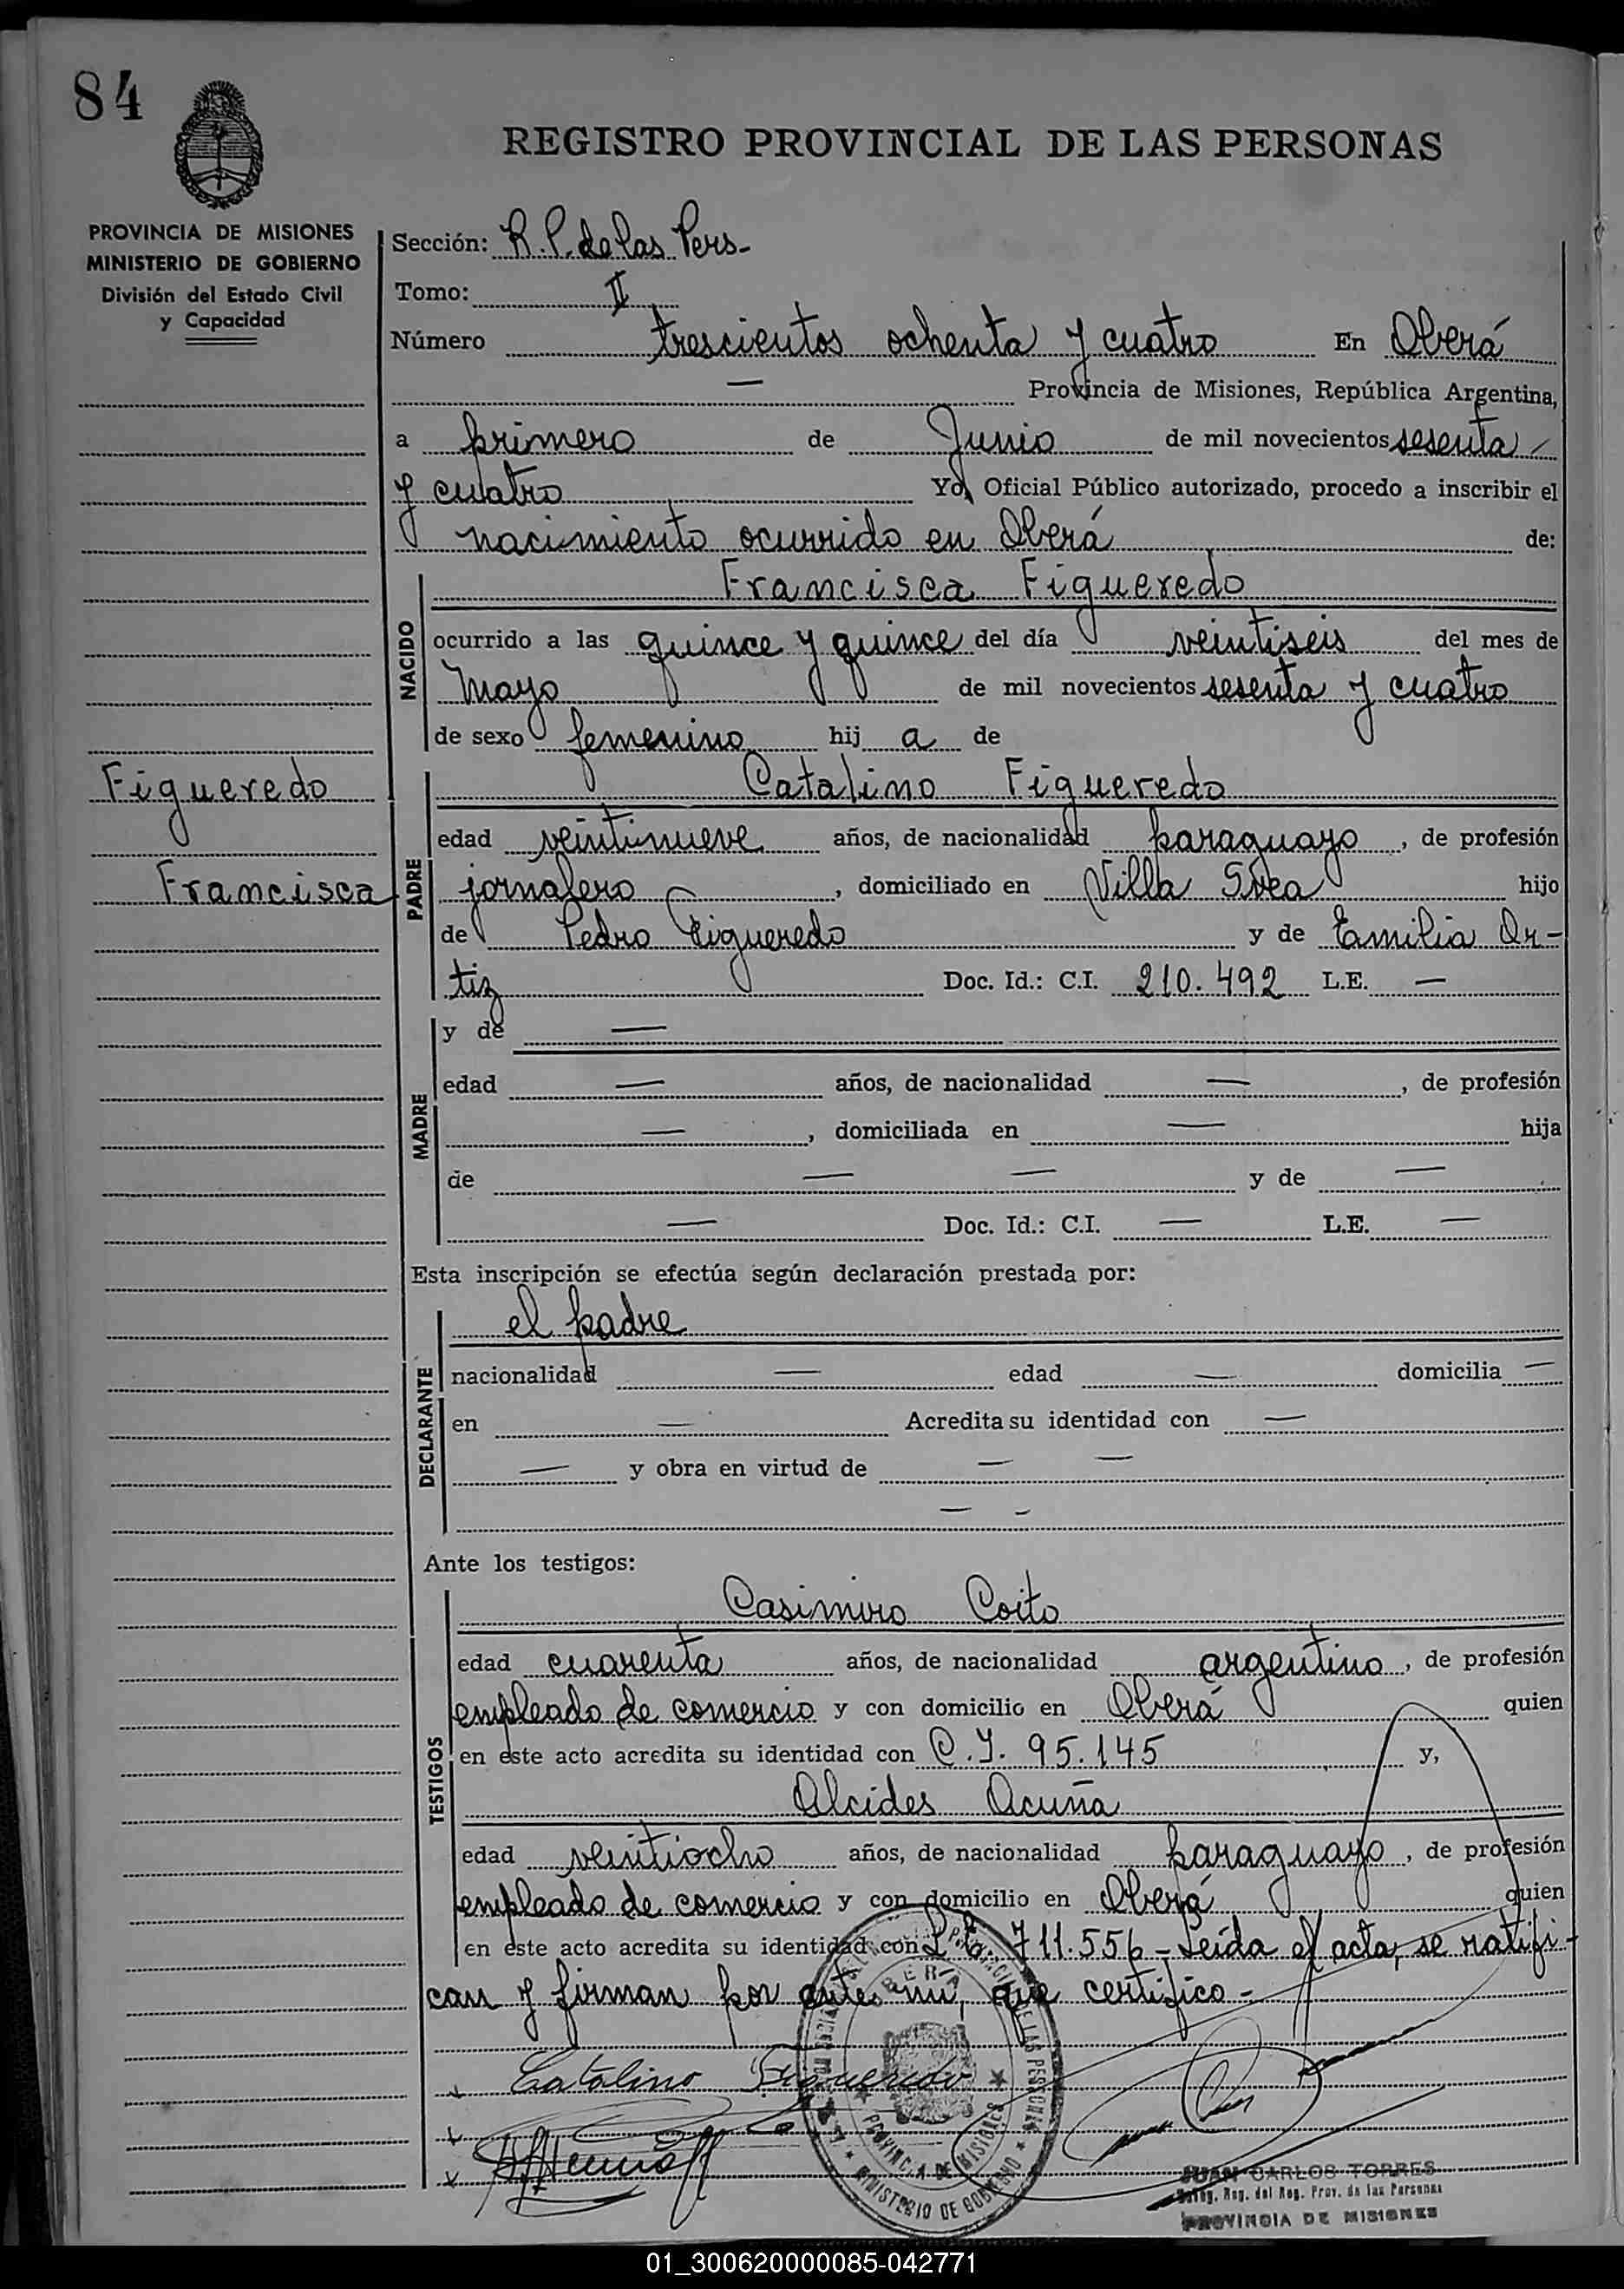 84
REGISTRO PROVINCIAL DE LAS PERSONAS
PROVINCIA DE MISIONES
MINISTERIO DE GOBIERNO
División del Estado Civil
y Capacidad
Sección: R.P. de las Pers-
Tomo: II
Número trescientos ochenta y cuatro En Oberá
— Provincia de Misiones, República Argentina,
a primero de Junio de mil novecientos sesenta
y cuatro Yo, Oficial Público autorizado, procedo a inscribir el
nacimiento ocurrido en Oberá de:
NACIDO
Francisca Figueredo
ocurrido a las quince y quince del día veintiseis del mes de
Mayo de mil novecientos sesenta y cuatro
de sexo femenino hij a de
Figueredo
Francisca
PADRE
Catalino Figueredo
edad veintinueve años, de nacionalidad paraguayo, de profesión
jornalero, domiciliado en Villa Svea hijo
de Pedro Figueredo y de Emilia Or-
tiz Doc. Id.: C.I. 210.492 L.E. —
MADRE
y de —
edad — años, de nacionalidad —, de profesión
—, domiciliada en — hija
de — — y de —
— Doc. Id.: C.I. — L.E. —
Esta inscripción se efectúa según declaración prestada por:
DECLARANTE
el padre
nacionalidad — edad — domicilia —
en — Acredita su identidad con —
— y obra en virtud de — —
— -
Ante los testigos:
TESTIGOS
Casimiro Coito
edad cuarenta años, de nacionalidad argentino, de profesión
empleado de comercio y con domicilio en Oberá quien
en este acto acredita su identidad con C.I. 95.145 y,
Alcides Acuña
edad veintiocho años, de nacionalidad paraguayo, de profesión
empleado de comercio y con domicilio en Oberá quien
en este acto acredita su identidad con 711.556 - Leída el acta, se ratifi-
can y firman por ante mi, que certifico -
Catalino Figueredo
OBERA
PROVINCIA DE MISIONES
MINISTERIO DE GOBIERNO
JUAN CARLOS TORRES
Reg. del Reg. Prov. de las Personas
PROVINCIA DE MISIONES
01_300620000085-042771